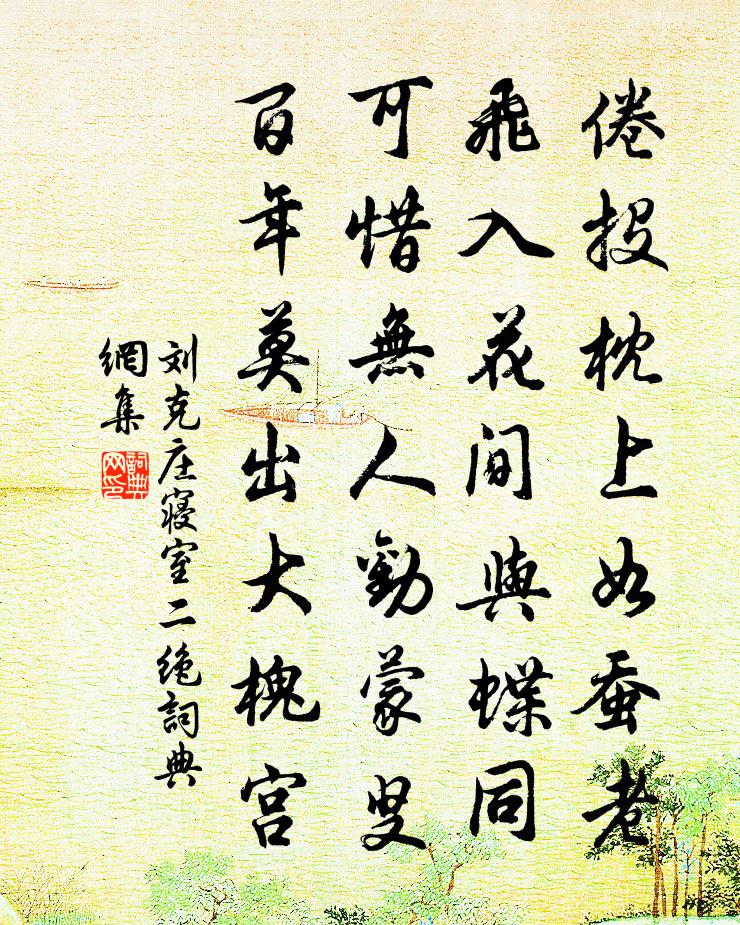 倦投枕上如蚕老
飛入花间與蝶同
可惜無人勸蒙叟
百年莫出大槐宫
刘克庄寝室二绝詞典
網集
詞典
网印